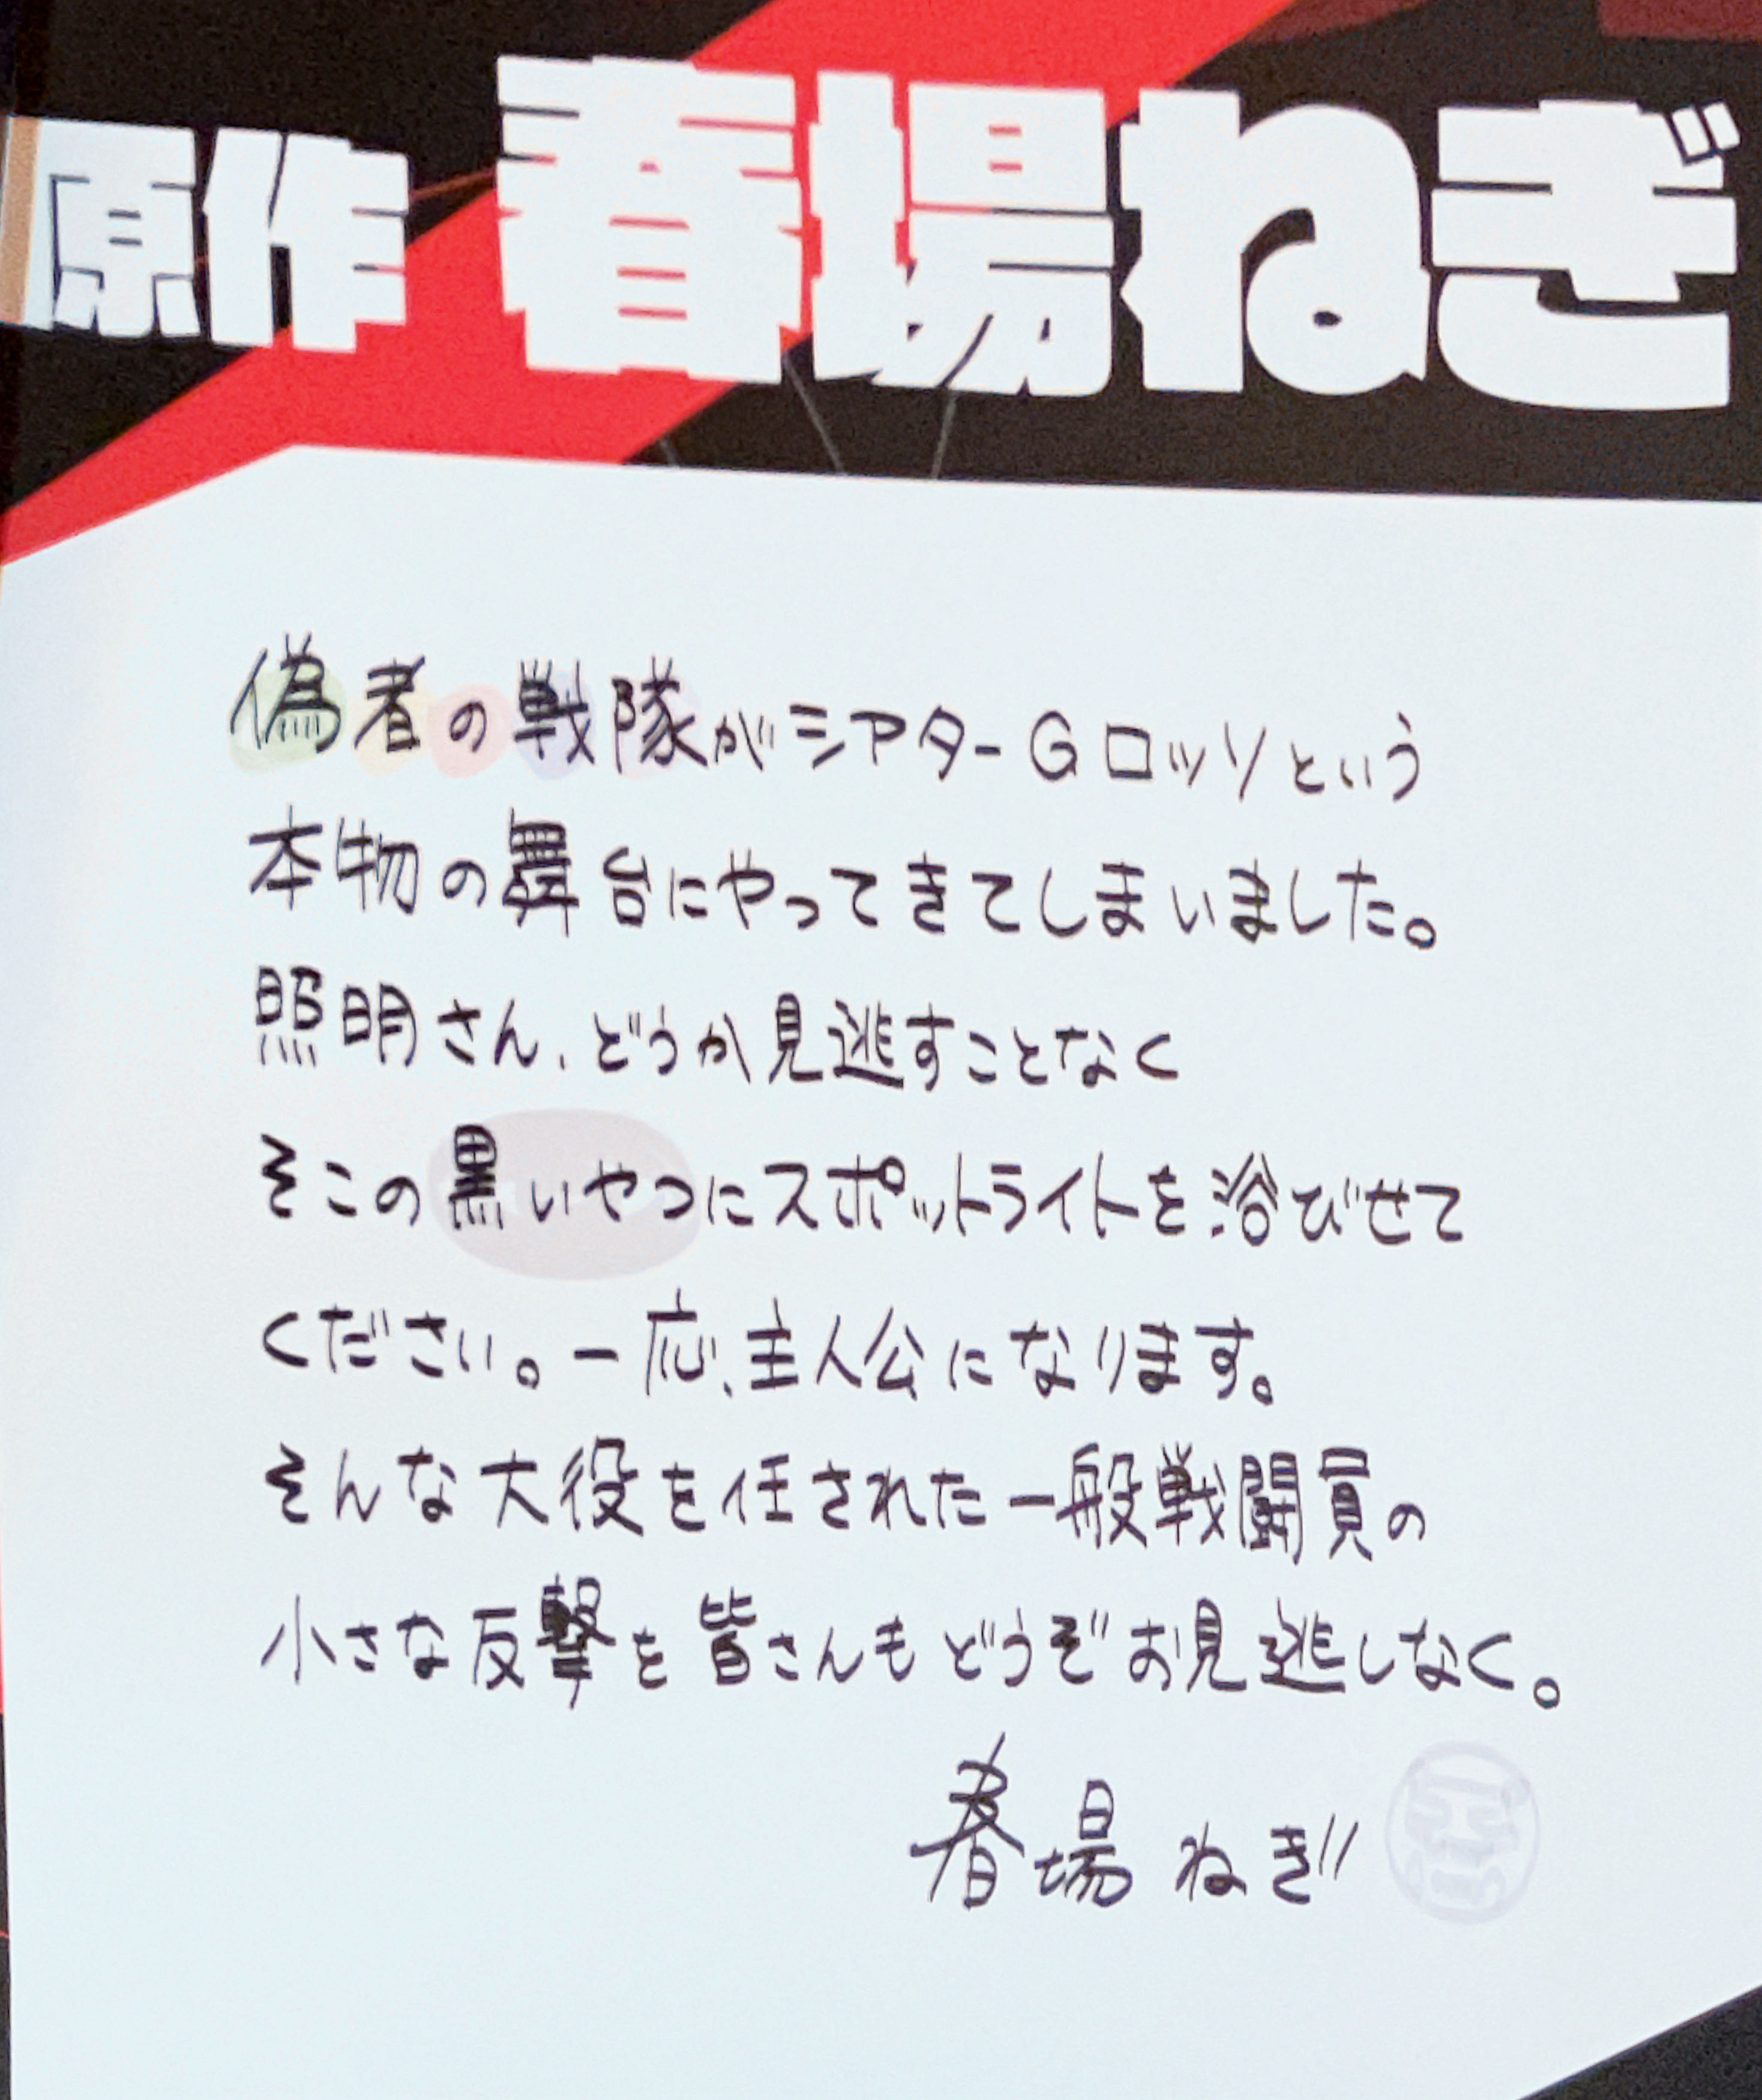 原作 春場ねぎ
偽者の戦隊がシアターGロッソという
本物の舞台にやってきてしまいました。
照明さん、どうか見逃すことなく
そこの黒いやつにスポットライトを浴びせて
ください。一応、主人公になります。
そんな大役を任された一般戦闘員の
小さな反撃を皆さんもどうぞお見逃しなく。
春場ねぎ